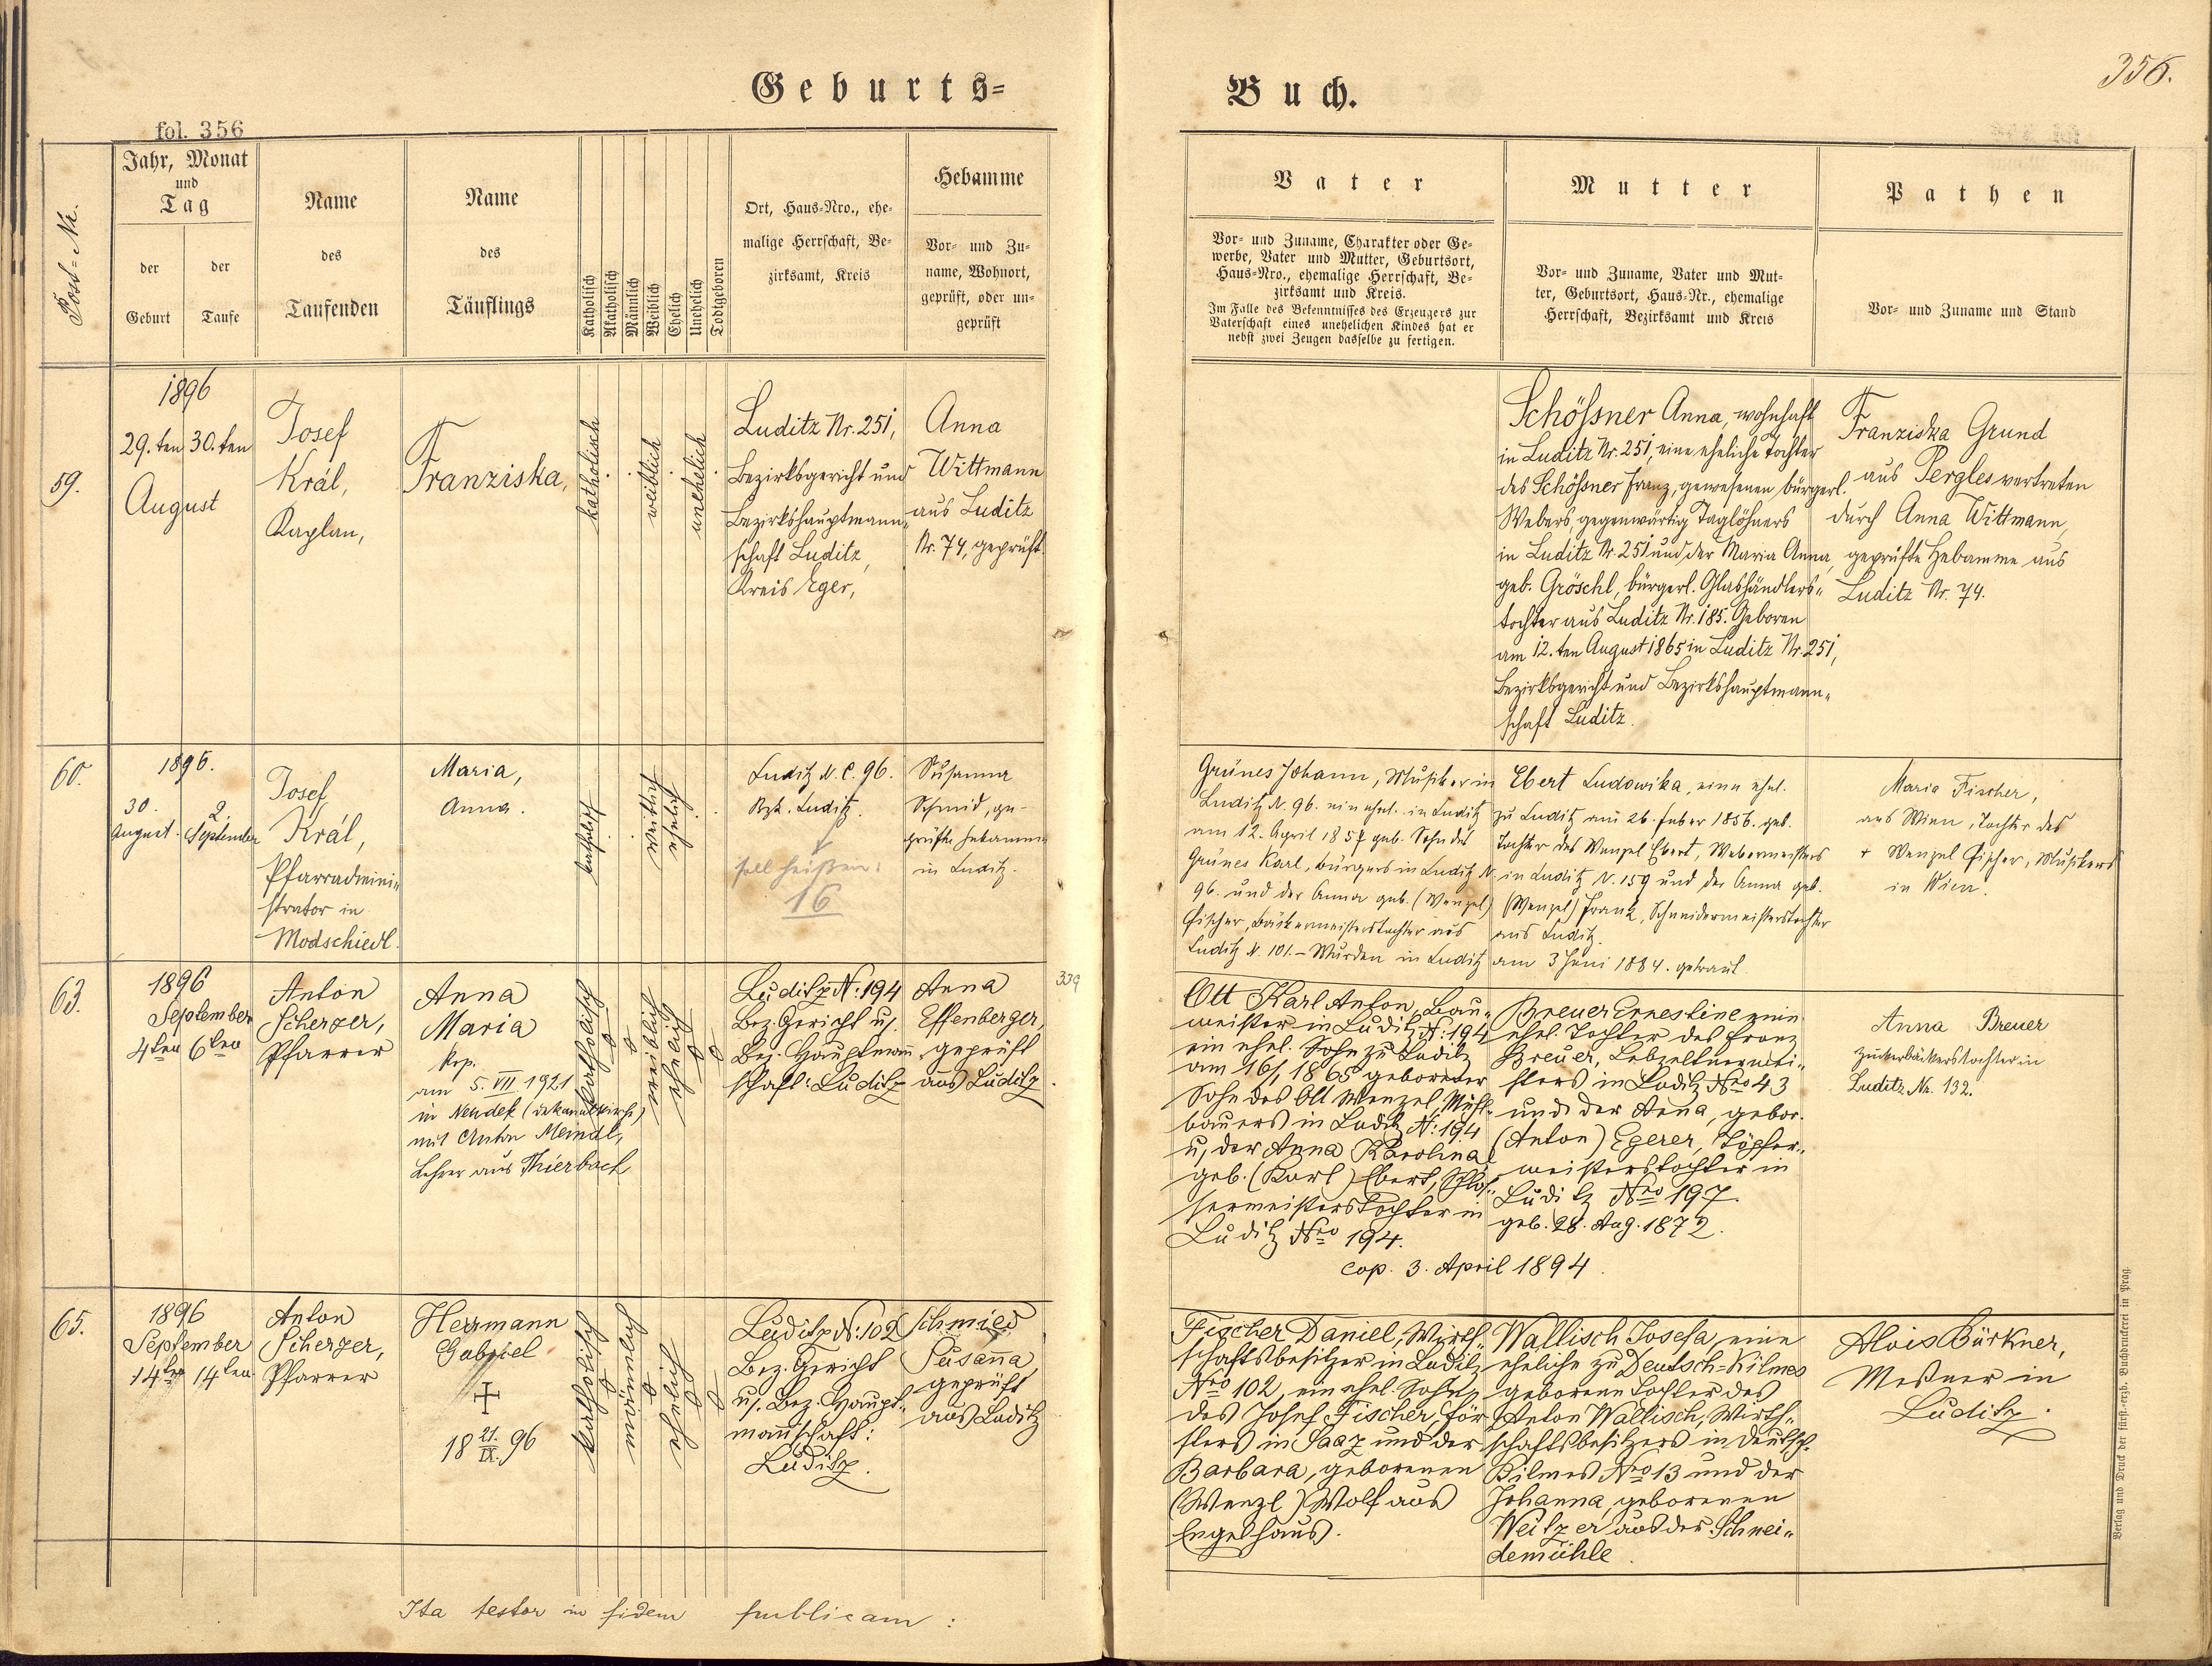 Geburts=
Buch.
356.
fol. 356
Post-Nr.
Jahr, Monat
und
Tag
der
Geburt
der
Taufe
Name
des
Taufenden
Name
des
Täuflings
Katholisch
Akatholisch
Männlich
Weiblich
Ehelich
Unehelich
Todtgeboren
Ort, Haus-Nro., ehe-
malige Herrschaft, Be-
zirksamt, Kreis
Hebamme
Vor- und Zu-
name, Wohnort,
geprüft, oder un-
geprüft
Vater
Vor- und Zuname, Charakter oder Ge-
werbe, Vater und Mutter, Geburtsort,
Haus-Nro., ehemalige Herrschaft, Be-
zirksamt und Kreis.
Im Falle des Bekenntnisses des Erzeugers zur
Vaterschaft eines unehelichen Kindes hat er
nebst zwei Zeugen dasselbe zu fertigen.
Mutter
Vor- und Zuname, Vater und Mut-
ter, Geburtsort, Haus-Nr., ehemalige
Herrschaft, Bezirksamt und Kreis
Pathen
Vor- und Zuname und Stand
59.
1896
29.ten 30.ten
August
Josef
Král,
Kaplan,
Franziska,
katholisch
weiblich
unehelich
Luditz Nr. 251,
Bezirksgericht und
Bezirkshauptmann-
schaft Luditz,
Kreis Eger,
Anna
Wittmann
aus Luditz
Nr. 74, geprüft.
Schößner Anna, wohnhaft
in Luditz Nr. 251, eine eheliche Tochter
des Schößner Franz, gewesenen bürgerl.
Webers, gegenwärtig Taglöhners
in Luditz Nr. 251 und der Maria Anna,
geb. Gröschl, bürgerl. Glashändlers-
tochter aus Luditz Nr. 185. Geboren
am 12.ten August 1865 in Luditz Nr. 251,
Bezirksgericht und Bezirkshauptmann-
schaft Luditz.
Franziska Grund
aus Pergles vertreten
durch Anna Wittmann,
geprüfte Hebamme aus
Luditz Nr. 74.
60.
1896.
30.
August.
2.
September
Josef
Král,
Pfarradmini-
strator in
Modschiedl.
Maria,
Anna.
katholisch
weiblich
ehelich
Luditz N. C. 96.
Bzk. Luditz.
soll heißen:
16
Susanna
Schmid, ge-
prüfte Hebamme
in Luditz.
Grünes Johann, Musiker in
Luditz N. 96. ein ehel. in Luditz
am 12. April 1857 geb. Sohn des
Grünes Karl, Bürgers in Luditz N.
96. und der Anna geb. (Wenzel)
Fischer, Bäckermeisterstochter aus
Luditz N. 101. – Wurden in Luditz am 3 Juni 1884. getraut
Ebert Ludowika, eine ehel.
zu Luditz am 26. Feber 1856. geb.
Tochter des Wenzel Ebert, Webermeisters
in Luditz N. 159 und der Anna geb.
(Wenzel) Frank, Schneidermeisterstochter
aus Luditz.
Maria Fischer,
aus Wien, Tochter des
+ Wenzel Fischer, Musikers
in Wien.
63.
1896
September
4ten 6ten
Anton
Scherzer,
Pfarrer
Anna
Maria
kop.
am 5. VII 1921
in Neudek (Dekanalkirche)
mit Anton Meindl,
Lehrer aus Thierbach
katholisch
weiblich
ehelich
Luditz N: 194
Bez. Gericht u.
Bez. Hauptmann
schaft: Luditz
Anna
Effenberger,
geprüft
aus Luditz.
339
Ott Karl Anton, Bau-
meister in Luditz N: 194
ein ehel. Sohn zu Luditz
am 16/1 1865 geborener
Sohn des Ott Wenzel, Mühl-
bauers in Luditz N: 194
u. der Anna Karolina
geb. (Karl) Ebert, Schlos-
sermeisterstochter in
Luditz Nro 194.
Breuer Ernestine eine
ehel. Tochter des Franz
Breuer, Lebzeltermei-
sters in Luditz Nro 43
und der Anna, gebor.
(Anton) Egerer, Töpfer-
meisterstochter in
Luditz Nro 197.
geb. 28. Aug. 1872.
cop. 3. April 1894.
Anna Breuer
Zuckerbäckerstochter in
Luditz Nr. 132.
65.
1896
September
14ten 14ten
Anton
Scherzer,
Pfarrer
Herrmann
Gabriel
18 21./IX. 96
katholisch
männlich
ehelich
Luditz N: 102
Bez. Gericht
u. Bez. Haupt-
mannschaft:
Luditz.
Schmied
Susanna,
geprüft
aus Luditz
Fischer Daniel, Wirth-
schaftsbesitzer in Luditz
Nro 102, ein ehel. Sohn
des Josef Fischer, För-
sters in Saaz und der
Barbara, geborenen
(Wenzl) Wolf aus
Engelhaus.
Wallisch Josefa, eine
eheliche zu Deutsch-Kilmes
geborene Tochter des
Anton Wallisch, Wirth-
schaftsbesitzers in Deutsch-
Kilmes Nro 13 und der
Johanna, geborenen
Weitzer aus der Schnei-
demühle.
Alois Bürkner,
Meßner in
Luditz.
Ita testor in fidem publicam:
Verlag und Druck der fürst.-erzb. Buchdruckerei in Prag.